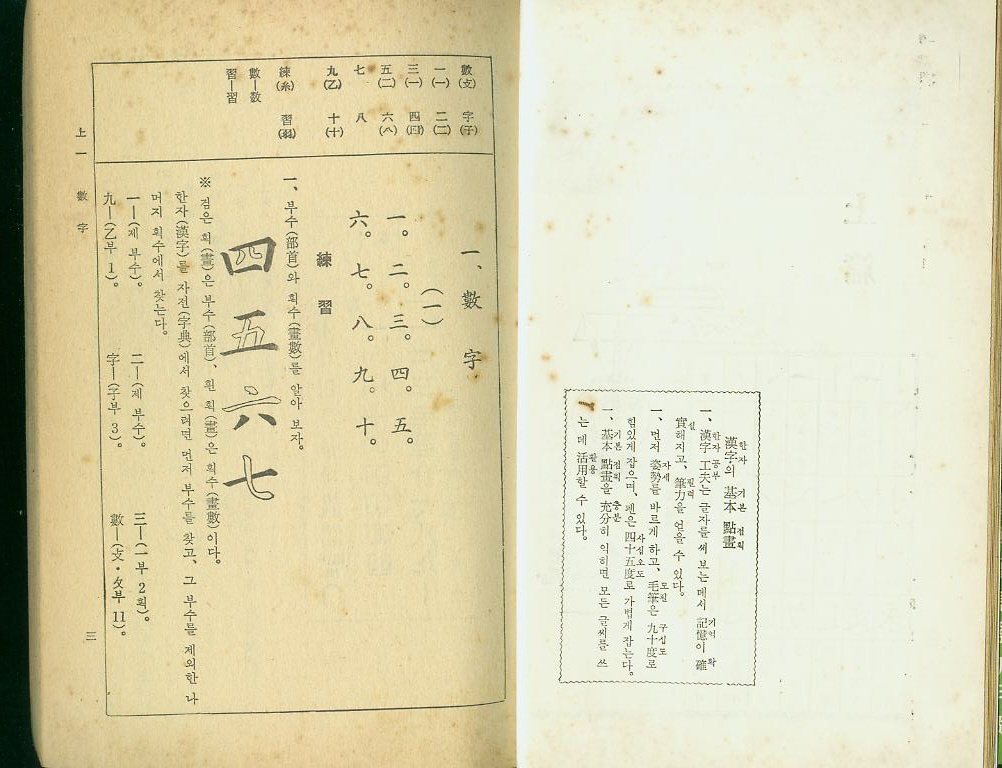 한자 기본 점획
漢字의 基本 點畫
한자 공부 기억 확
一、漢字 工夫는 글자를 써 보는 데서 記憶이 確
실 필력
實해지고、筆力을 얻을 수 있다。
자세 모필 구십도
一、먼저 姿勢를 바르게 하고、毛筆은 九十度로
사십오도
힘있게 잡으며、펜은 四十五度로 가볍게 잡는다。
기본 점획 충분
一、基本 點畫을 充分히 익히면 모든 글씨를 쓰
활용
는 데 活用할 수 있다。
數(攴) 字(子)
一(一) 二(二)
三(一) 四(囗)
五(二) 六(八)
七 八
九(乙) 十(十)
練(糸) 習(羽)
數─数
習─習
一、數字
(一)
一。二。三。四。五。
六。七。八。九。十。
練習
一、부수(部首)와 획수(畫數)를 알아 보자。
四五六七
※ 검은 획(畫)은 부수(部首)、흰 획(畫)은 획수(畫數)이다。
한자(漢字)를 자전(字典)에서 찾으려면 먼저 부수를 찾고、그 부수를 제외한 나
머지 획수에서 찾는다。
一─(제 부수)。 二─(제 부수)。 三─(一부 2획)。
九─(乙부 1)。 字─(子부 3)。 數─(攴・攵부 11)。
上一 數字
三